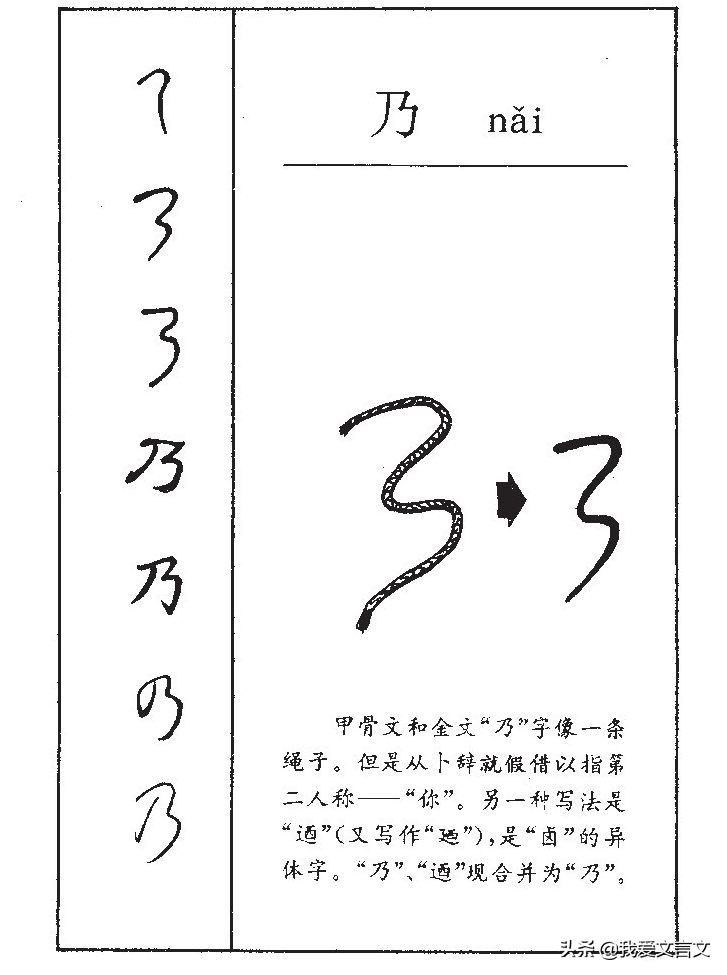 乃 nǎi
乃
乃
乃
乃
甲骨文和金文“乃”字像一条
绳子。但是从卜辞就假借以指第
二人称——“你”。另一种写法是
“迺”(又写作“廼”),是“卤”的异
体字。“乃”、“迺”现合并为“乃”。
头条 @我爱文言文